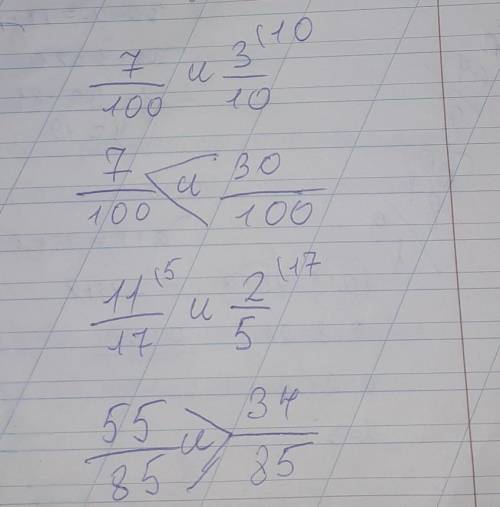 7/100 и 3/10 (10
7/100 < и 30/100
11/17 (5 и 2/5 (17
55/85 > и 34/85